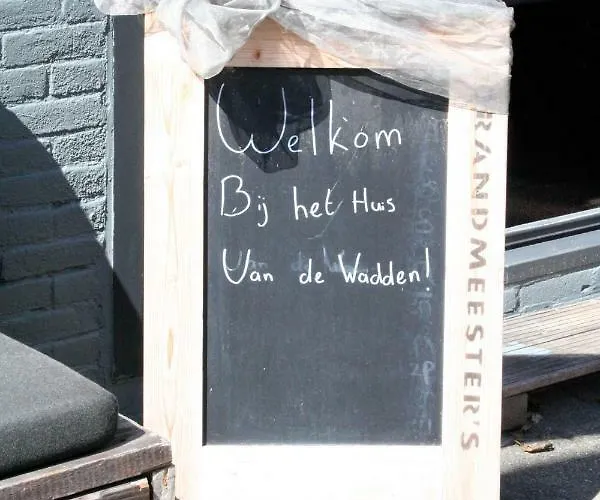 Welkom
Bij het Huis
Van de Wadden!
RANDMEESTER'S